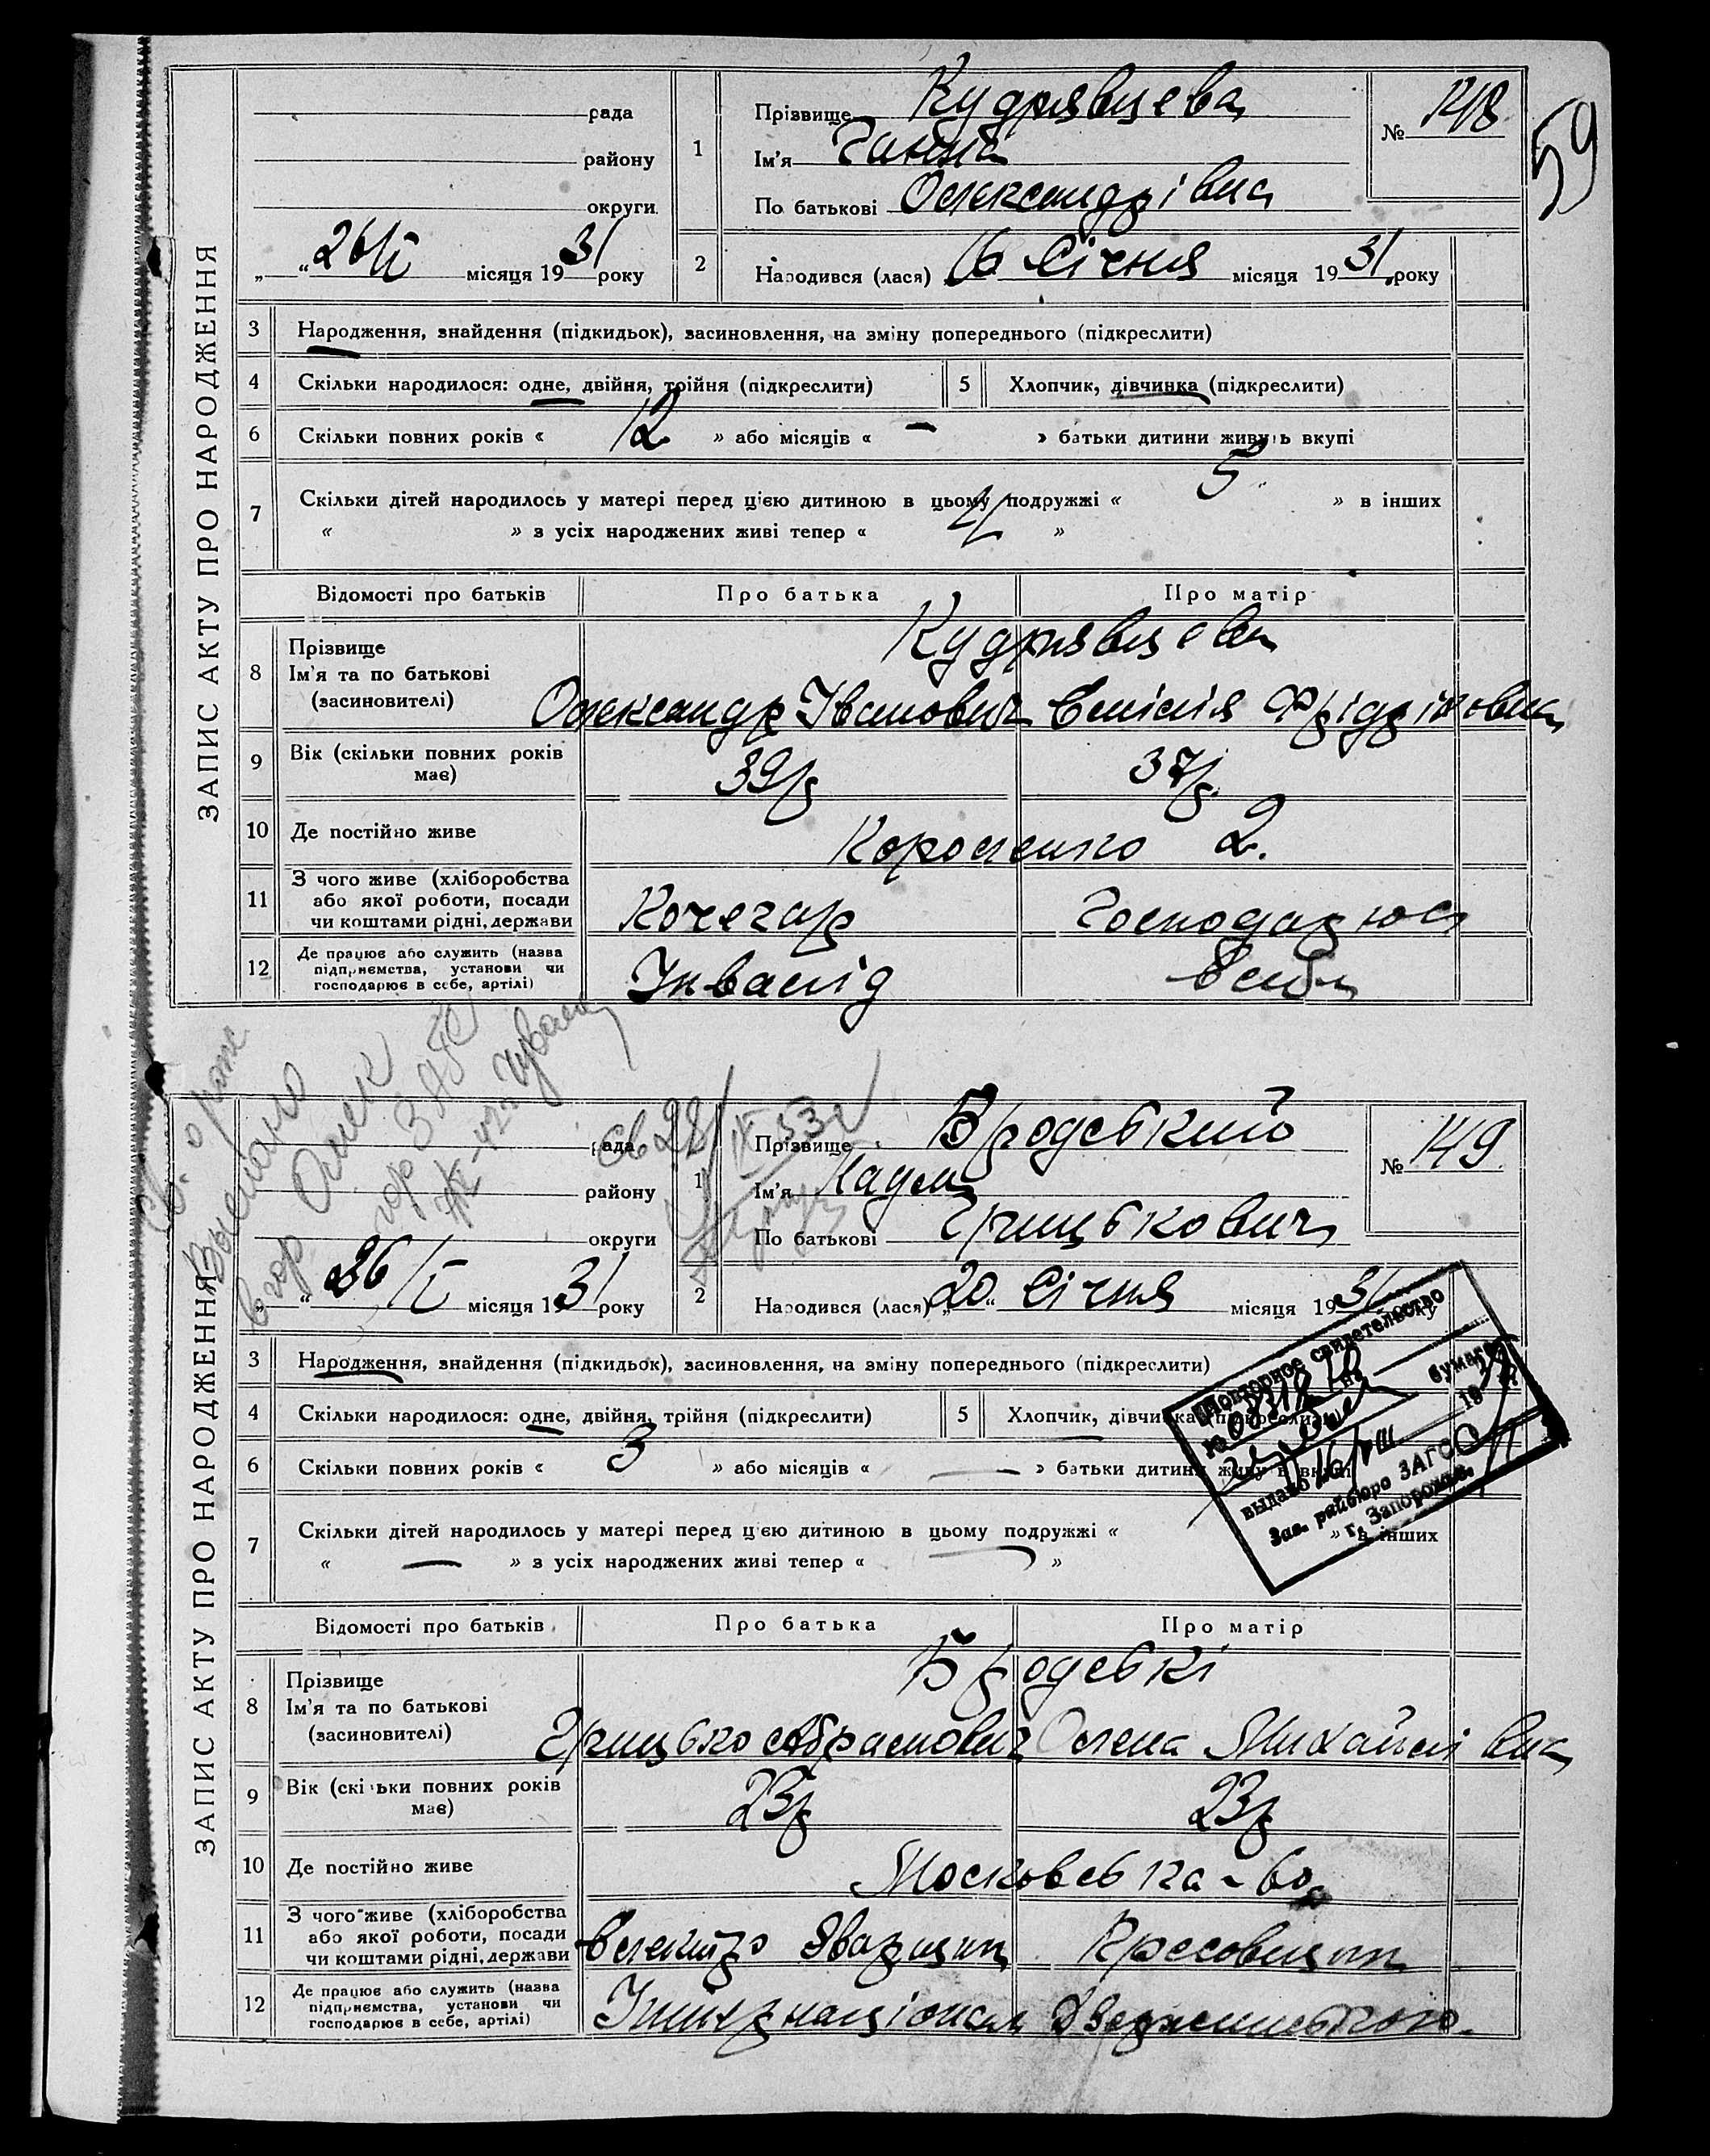 59
ЗАПИС АКТУ ПРО НАРОДЖЕННЯ
рада
району
округи
„ “ 26/I місяця 1931 року
1
Прізвище Кудрявцева
Ім'я Ганна
По батькові Олександрівна
№ 148
2
Народився (лася) 16 Січня місяця 1931 року
3 Народження, знайдення (підкидьок), засиновлення, на зміну попереднього (підкреслити)
4 Скільки народилося: одне, двійня, трійня (підкреслити)
5 Хлопчик, дівчинка (підкреслити)
6 Скільки повних років « 12 » або місяців « — » батьки дитини живуть вкупі
7 Скільки дітей народилось у матері перед цією дитиною в цьому подружжі « 5 » в інших
« » з усіх народжених живі тепер « 4 »
Відомості про батьків Про батька Про матір
8 Прізвище
Ім'я та по батькові
(засиновителі)
Кудрявцева
Олександр Іванович Емілія Фрідріховна
9 Вік (скільки повних років має) 39р 37р.
10 Де постійно живе Короленко 2.
11 З чого живе (хліборобства
або якої роботи, посади
чи коштами рідні, держави
Кочегар Господарює
12 Де працює або служить (назва
підприємства, установи чи
господарює в себе, артілі)
Інвалід
Св. о рож
Выслано
в гор Омск
гор ЗАГС
ЗАПИС АКТУ ПРО НАРОДЖЕННЯ
рада
району
округи
„ “ 26/I місяця 1931 року
св 28/IX 53 г
1
Прізвище Бродський
Ім'я Наум
По батькові Грицькович
№ 149
2
Народився (лася) „20“ Січня місяця 1931 року
3 Народження, знайдення (підкидьок), засиновлення, на зміну попереднього (підкреслити)
4 Скільки народилося: одне, двійня, трійня (підкреслити)
5 Хлопчик, дівчинка (підкреслити)
6 Скільки повних років « 3 » або місяців « — » батьки дитини живуть вкупі
7 Скільки дітей народилось у матері перед цією дитиною в цьому подружжі « » в інших
« — » з усіх народжених живі тепер « — »
Повторное свидетельство
на бумаге
выдано 16/VIII 19
Зав. райбюро ЗАГС
г. Запорожье.
Відомості про батьків Про батька Про матір
8 Прізвище
Ім'я та по батькові
(засиновителі)
Бродські
Грицько Абрамович Олена Михайлівна
9 Вік (скільки повних років має) 23р 23р
10 Де постійно живе Московська - 60
11 З чого живе (хліборобства
або якої роботи, посади
чи коштами рідні, держави
електро зварщик
12 Де працює або служить (назва
підприємства, установи чи
господарює в себе, артілі)
Інтернаціонал Дзержинського.